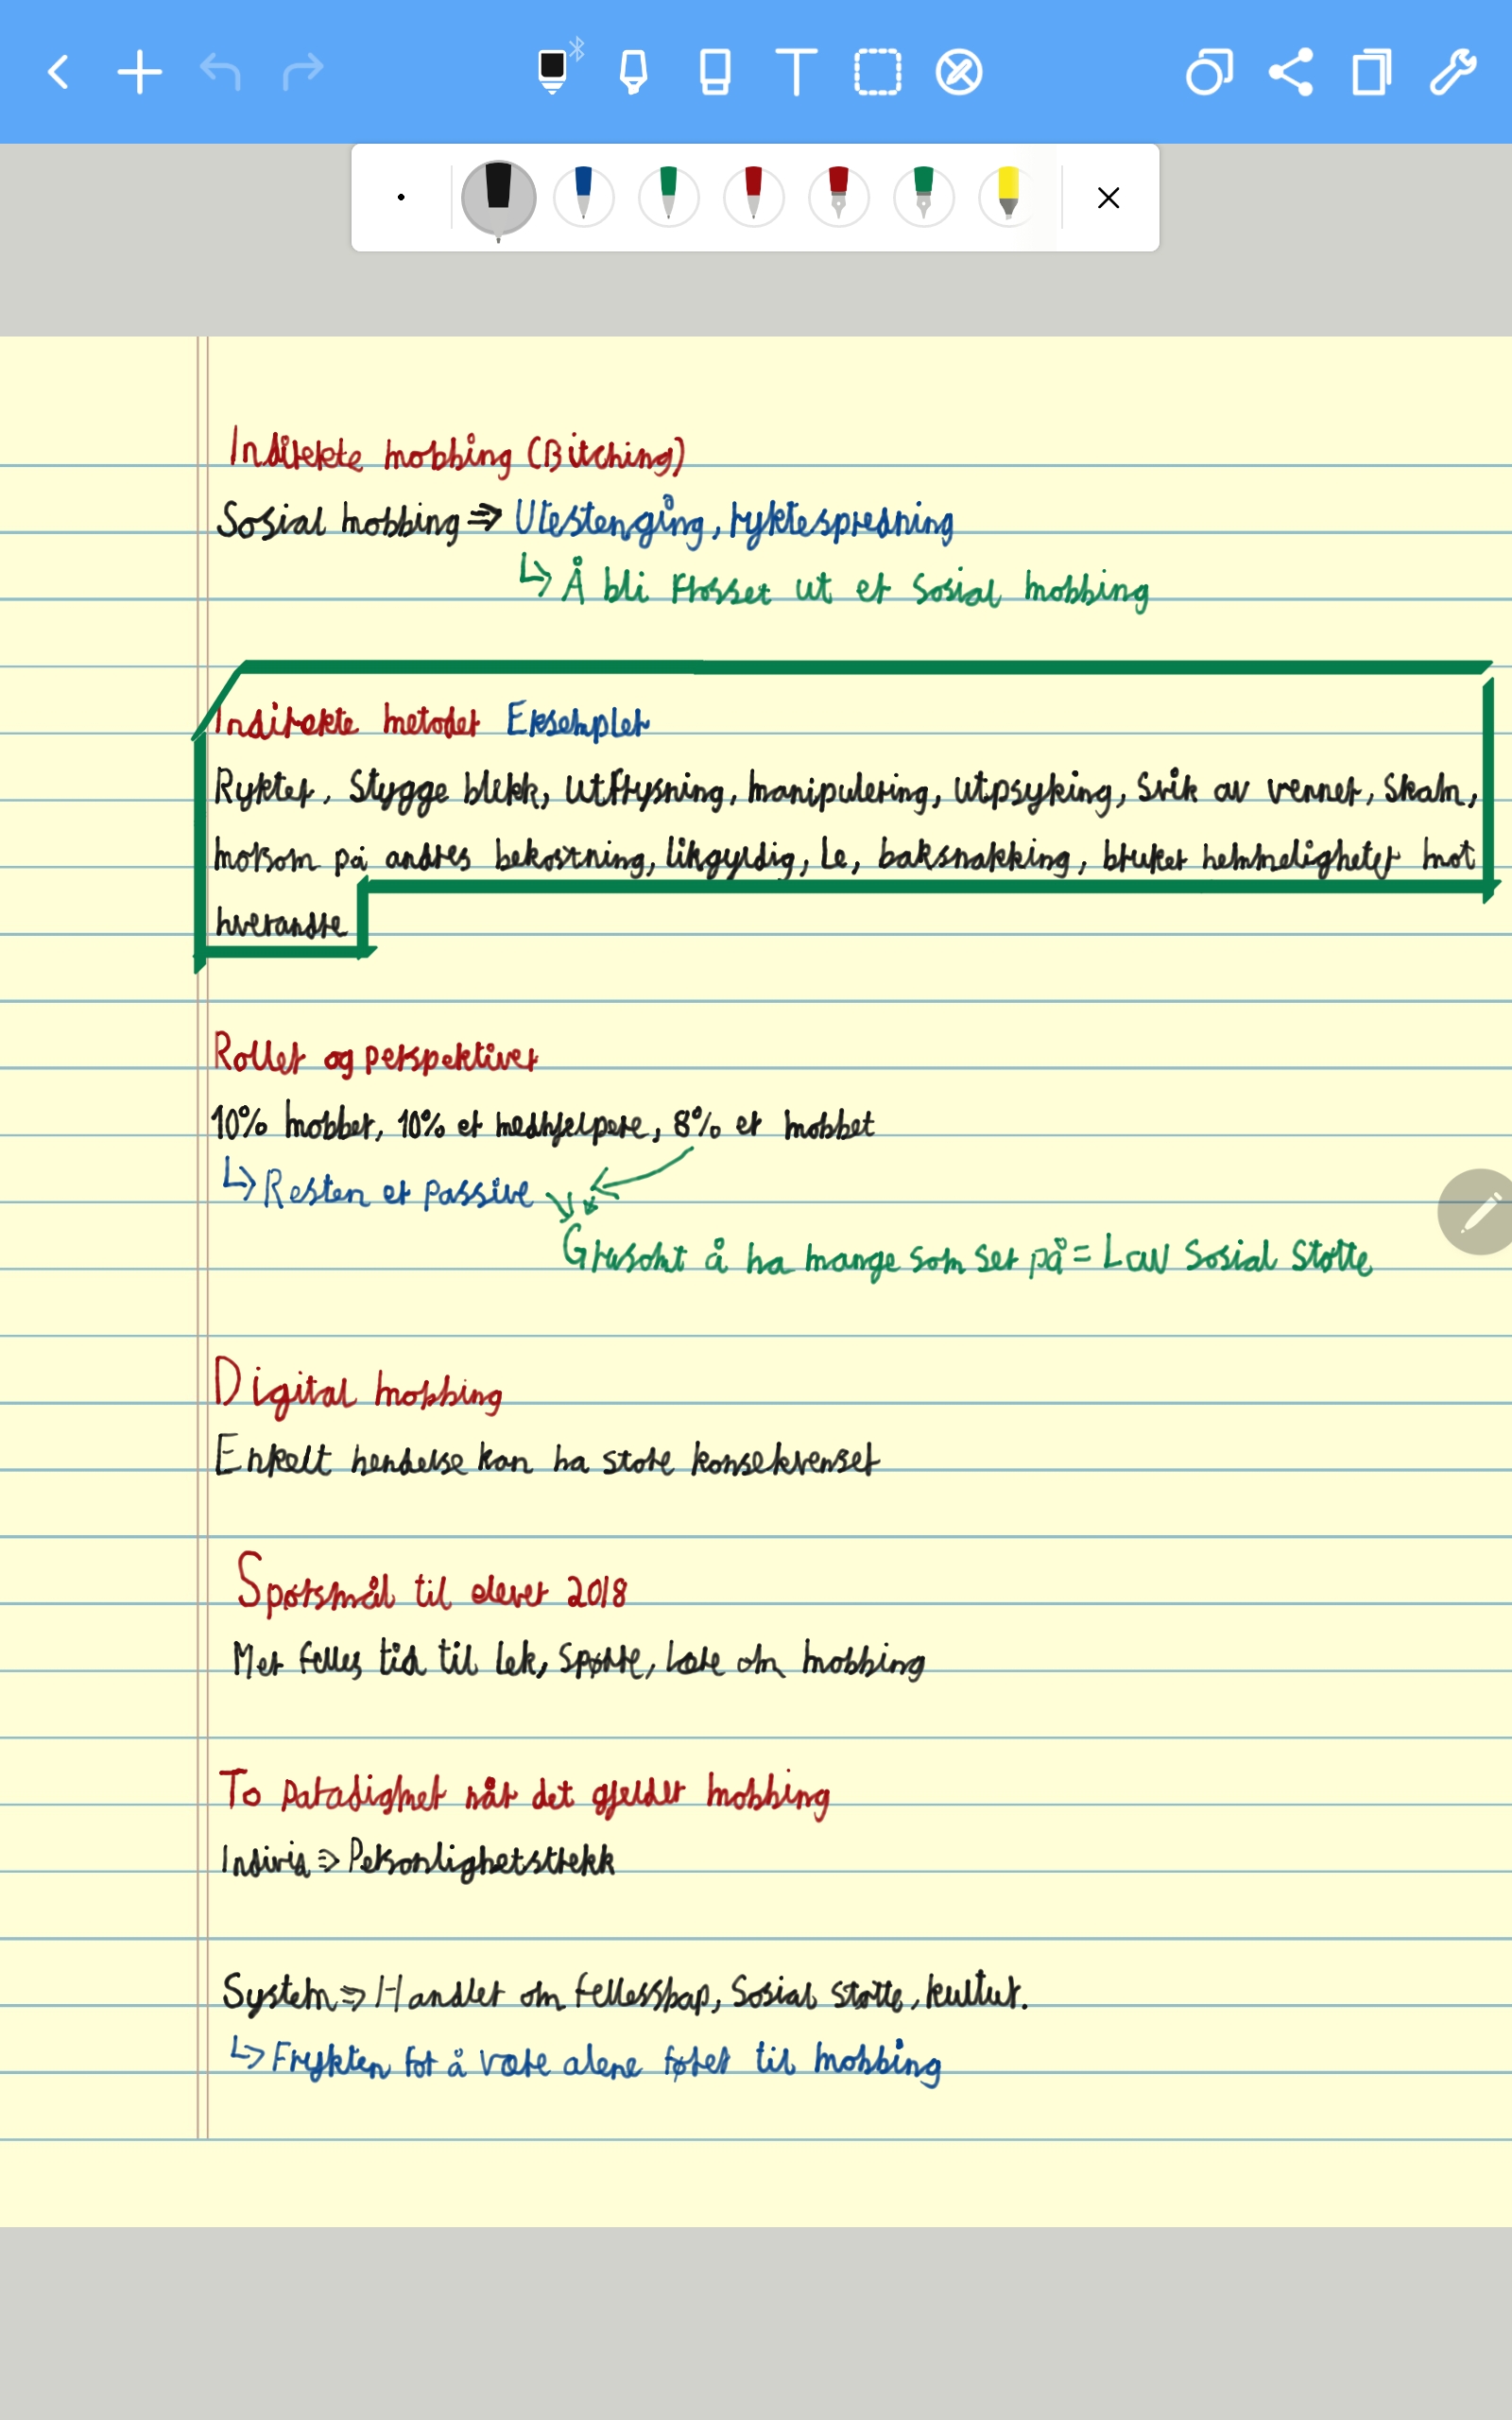 Indirekte mobbing (Bitching)
Sosial mobbing => Utestengång, ryktespredning
↳ Å bli frosset ut er sosial mobbing
Indirekte metoder Eksempler
Rykter, Stygge blikk, Utfrysning, manipulering, utpsyking, Svik av venner, Skam,
morsom på andres bekostning, likgyldig, Le, baksnakking, bruker hemmeligheter mot
hverandre
Roller og perspektiver
10% mobber, 10% er medhjelpere, 8% er mobbet
↳ Resten er passive
Grusomt å ha mange som ser på = Lav Sosial Støtte
Digital mobbing
Enkelt hendelse kan ha store konsekvenser
Spørsmål til elever 2018
Mer felles tid til lek, Sporte, Lære om mobbing
To paradigmer når det gjelder mobbing
Individ => Personlighetstrekk
System => Handler om fellesskap, Sosial støtte, kultur.
↳ Frykten for å være alene fører til mobbing